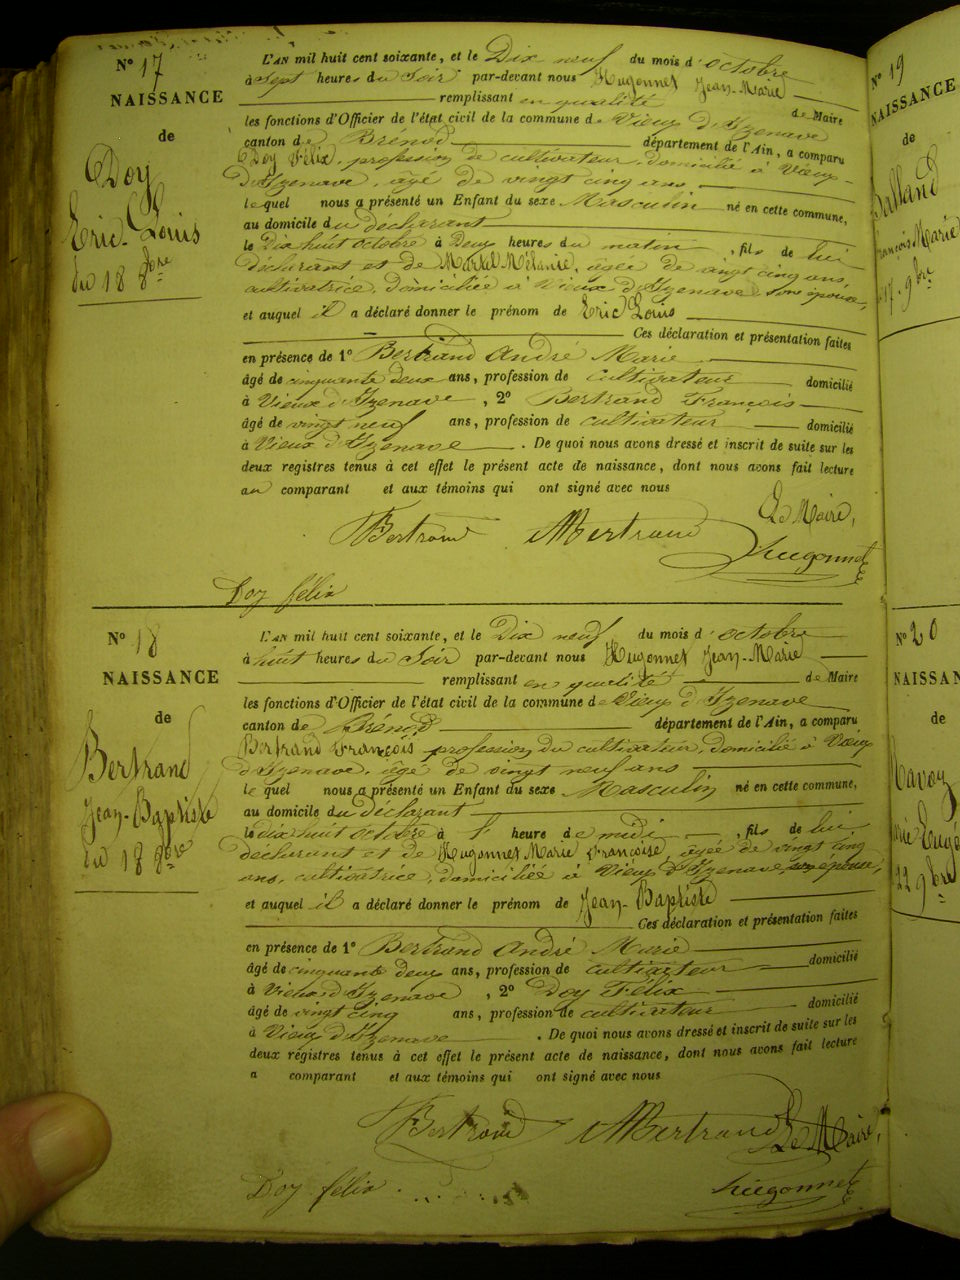 N° 17
NAISSANCE
de
Doy
Eric-Louis
Du 18 8bre
L'AN mil huit cent soixante, et le Dix neuf du mois d'octobre
à Sept heures du Soir par-devant nous Hugonnet Jean-Marie
remplissant en qualité de Maire
les fonctions d'Officier de l'état civil de la commune de Vieux d'Izenave
canton de Brénod département de l'Ain, a comparu
Doy Félix, profession de cultivateur, domicilié à Vieux-
D'Izenave, âgé de vingt cinq ans,
lequel nous a présenté un Enfant du sexe Masculin né en cette commune,
au domicile du déclarant
le dix huit octobre à Deux heures du matin, fils de lui
déclarant et de Martel Mélanie, âgée de vingt cinq ans,
cultivatrice, domiciliée à Vieux d'Izenave son épouse,
et auquel il a déclaré donner le prénom de Eric Louis
Ces déclaration et présentation faites
en présence de 1° Bertrand André Marie
âgé de cinquante deux ans, profession de cultivateur domicilié
à Vieux d'Izenave, 2° Bertrand François
âgé de vingt neuf ans, profession de cultivateur domicilié
à Vieux d'Izenave. De quoi nous avons dressé et inscrit de suite sur les
deux registres tenus à cet effet le présent acte de naissance, dont nous avons fait lecture
au comparant et aux témoins qui ont signé avec nous
Le Maire,
Bertrand Bertrand Hugonnet
Doy félix
N° 18
NAISSANCE
de
Bertrand
Jean-Baptiste
Du 18 8bre
L'AN mil huit cent soixante, et le Dix neuf du mois d'octobre
à huit heures du Soir par-devant nous Hugonnet Jean-Marie
remplissant en qualité de Maire
les fonctions d'Officier de l'état civil de la commune de Vieux d'Izenave
canton de Brénod département de l'Ain, a comparu
Bertrand François profession du cultivateur, domicilié à Vieux
d'Izenave, âgé de vingt neuf ans
lequel nous a présenté un Enfant du sexe Masculin né en cette commune,
au domicile du déclarant
le dix huit octobre à 1 heure de midi, fils de lui
déclarant et de Hugonnet Marie Françoise, âgée de vingt cinq
ans, cultivatrice, domiciliée à Vieux d'Izenave son épouse,
et auquel il a déclaré donner le prénom de Jean-Baptiste
Ces déclaration et présentation faites
en présence de 1° Bertrand André Marie
âgé de cinquante deux ans, profession de cultivateur domicilié
à Vieux d'Izenave, 2° Doy Félix
âgé de vingt cinq ans, profession de cultivateur domicilié
à Vieux d'Izenave. De quoi nous avons dressé et inscrit de suite sur les
deux registres tenus à cet effet le présent acte de naissance, dont nous avons fait lecture
a comparant et aux témoins qui ont signé avec nous
Bertrand Bertrand Le Maire,
Doy félix Hugonnet
N° 19
NAISSANCE
de
Balland
François Marie
17 9bre
N° 20
NAISSAN
de
22 9bre